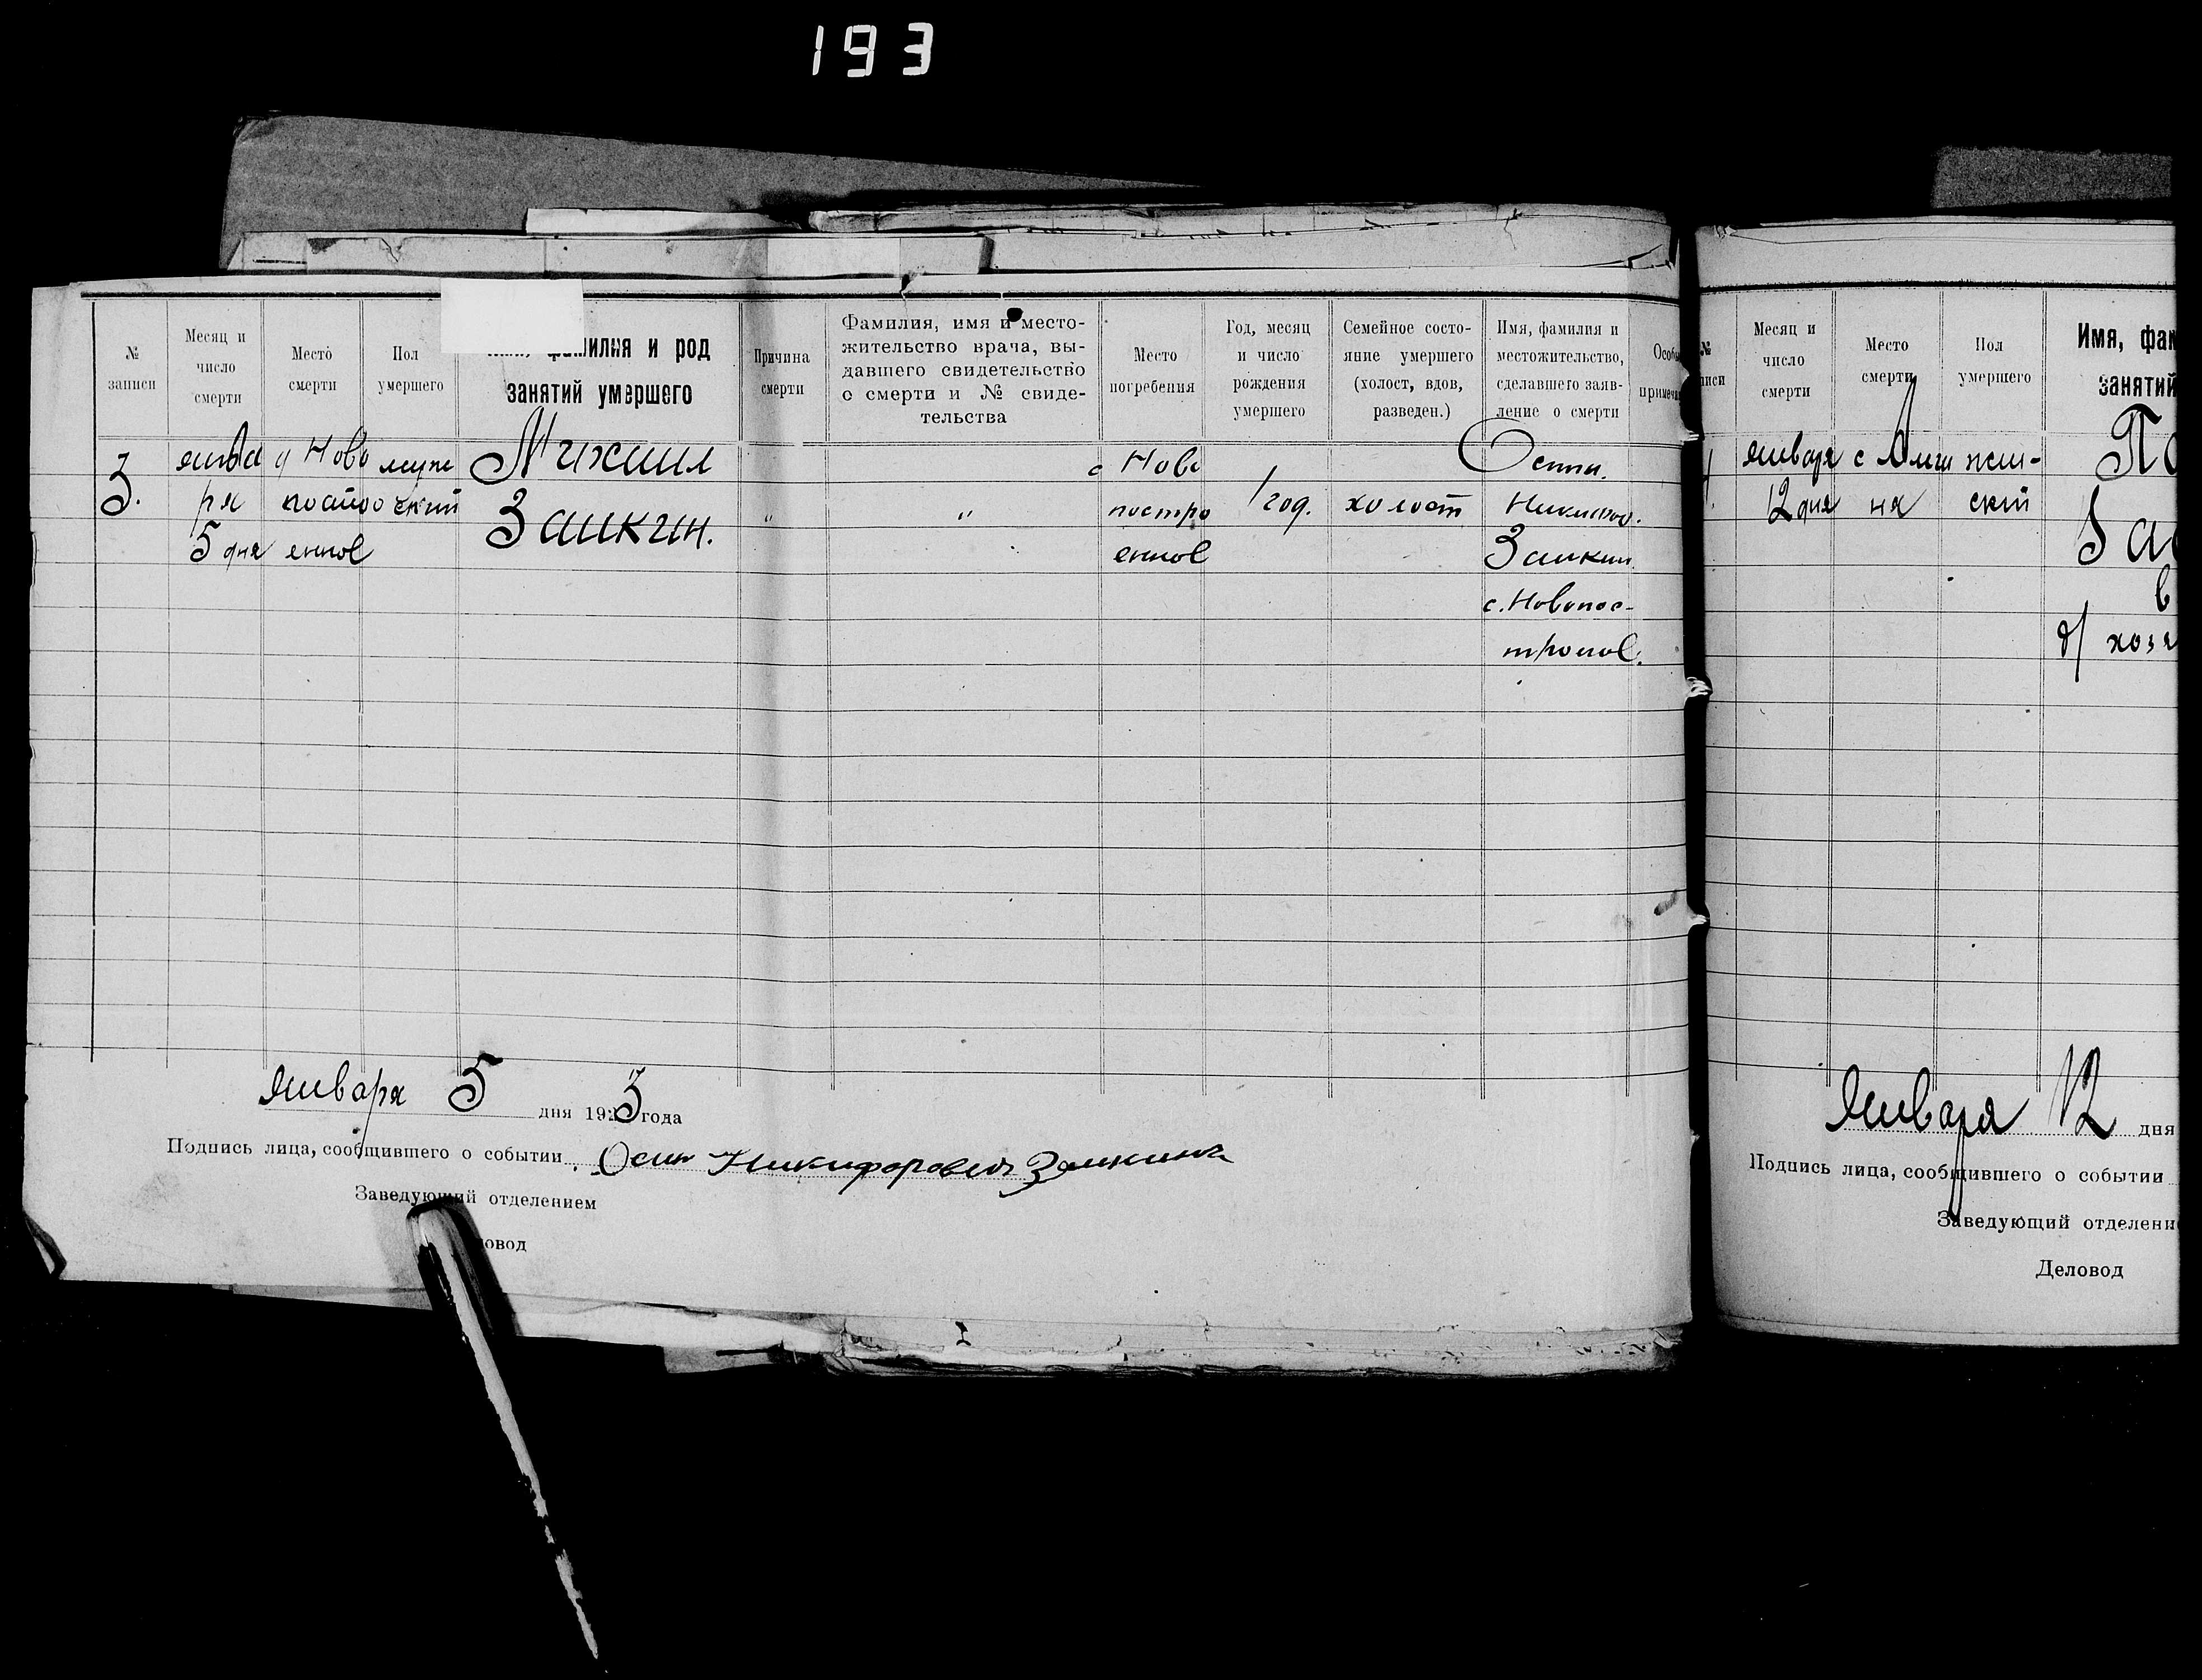 193
№ записи
Месяц и число смерти
Место смерти
Пол умершего
фамилия и род занятий умершего
Причина смерти
Фамилия, имя и место-
жительство врача, вы-
давшего свидетельство
о смерти и № свиде-
тельства
Место погребения
Год, месяц и число рождения умершего
Семейное состо-
яние умершего
(холост, вдов,
разведен.)
Имя, фамилия и
местожительство,
сделавшего заяв-
ление о смерти
3.
янва
ря
5 дня
Ново
енное
мужс
ский
Михаил
Заикин.
"
"
с Ново
постро
енное
1 год.
холост
Осип
Никифор.
Заикин
с. Новопос-
троное.
января 5 дня 1923 года
Подпись лица, сообщившего о событии Осип Никифорович Заикинъ
Заведующий отделением
овод
Месяц и число смерти
Место смерти
Пол умершего
Имя, фам
занятий
января
12 дня
жен-
ский
в
д/ хозя
Января 12 дня
Подпись лица, сообщившего о событии
Заведующий отделени
Деловод